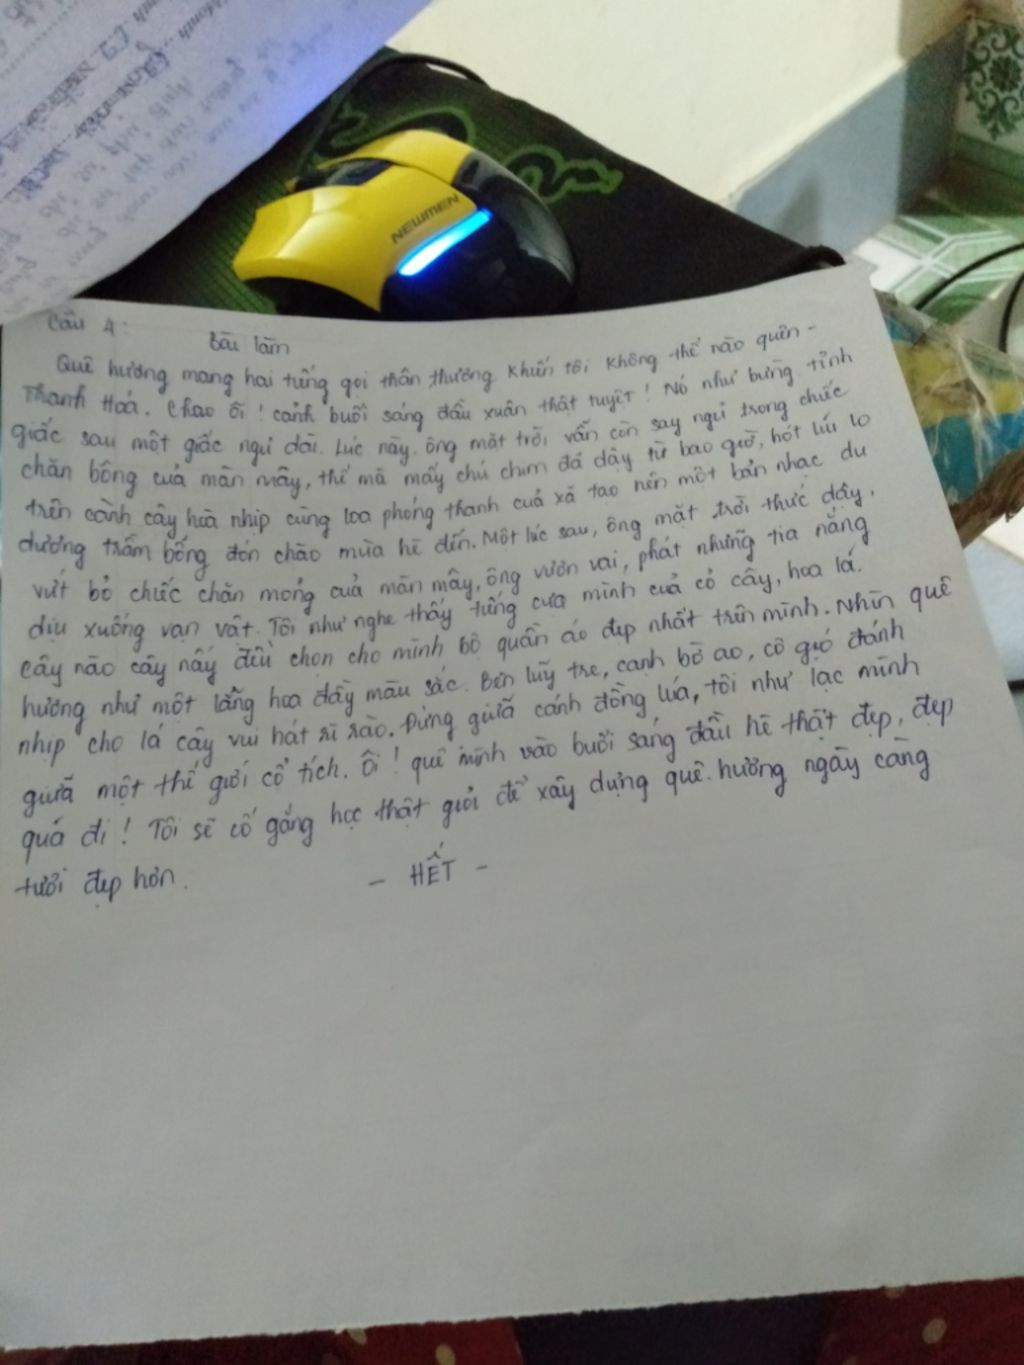 NEWMEN
Câu 4:
Bài làm
Quê hương mang hai tiếng gọi thân thương khiến tôi không thể nào quên -
Thanh Hoá. Chao ôi! cảnh buổi sáng đầu xuân thật tuyệt! Nó như bừng tỉnh
giấc sau một giấc ngủ dài. Lúc này, ông mặt trời vẫn còn say ngủ trong chiếc
chăn bông của màn mây, thế mà mấy chú chim đã dậy từ bao giờ, hót líu lo
trên cành cây hoà nhịp cùng loa phóng thanh của xã tạo nên một bản nhạc du
dương trầm bổng đón chào mùa hè đến. Một lúc sau, ông mặt trời thức dậy,
vứt bỏ chiếc chăn mỏng của màn mây, ông vươn vai, phát những tia nắng
dịu xuống vạn vật. Tôi như nghe thấy tiếng cựa mình của cỏ cây, hoa lá.
Cây nào cây nấy đều chọn cho mình bộ quần áo đẹp nhất trên mình. Nhìn quê
hương như một lẵng hoa đầy màu sắc. Bên luỹ tre, cạnh bờ ao, cô gió đánh
nhịp cho lá cây vui hát rì rào. Đứng giữa cánh đồng lúa, tôi như lạc mình
giữa một thế giới cổ tích. Ôi! quê mình vào buổi sáng đầu hè thật đẹp, đẹp
quá đi! Tôi sẽ cố gắng học thật giỏi để xây dựng quê hương ngày càng
tươi đẹp hơn.
- HẾT -